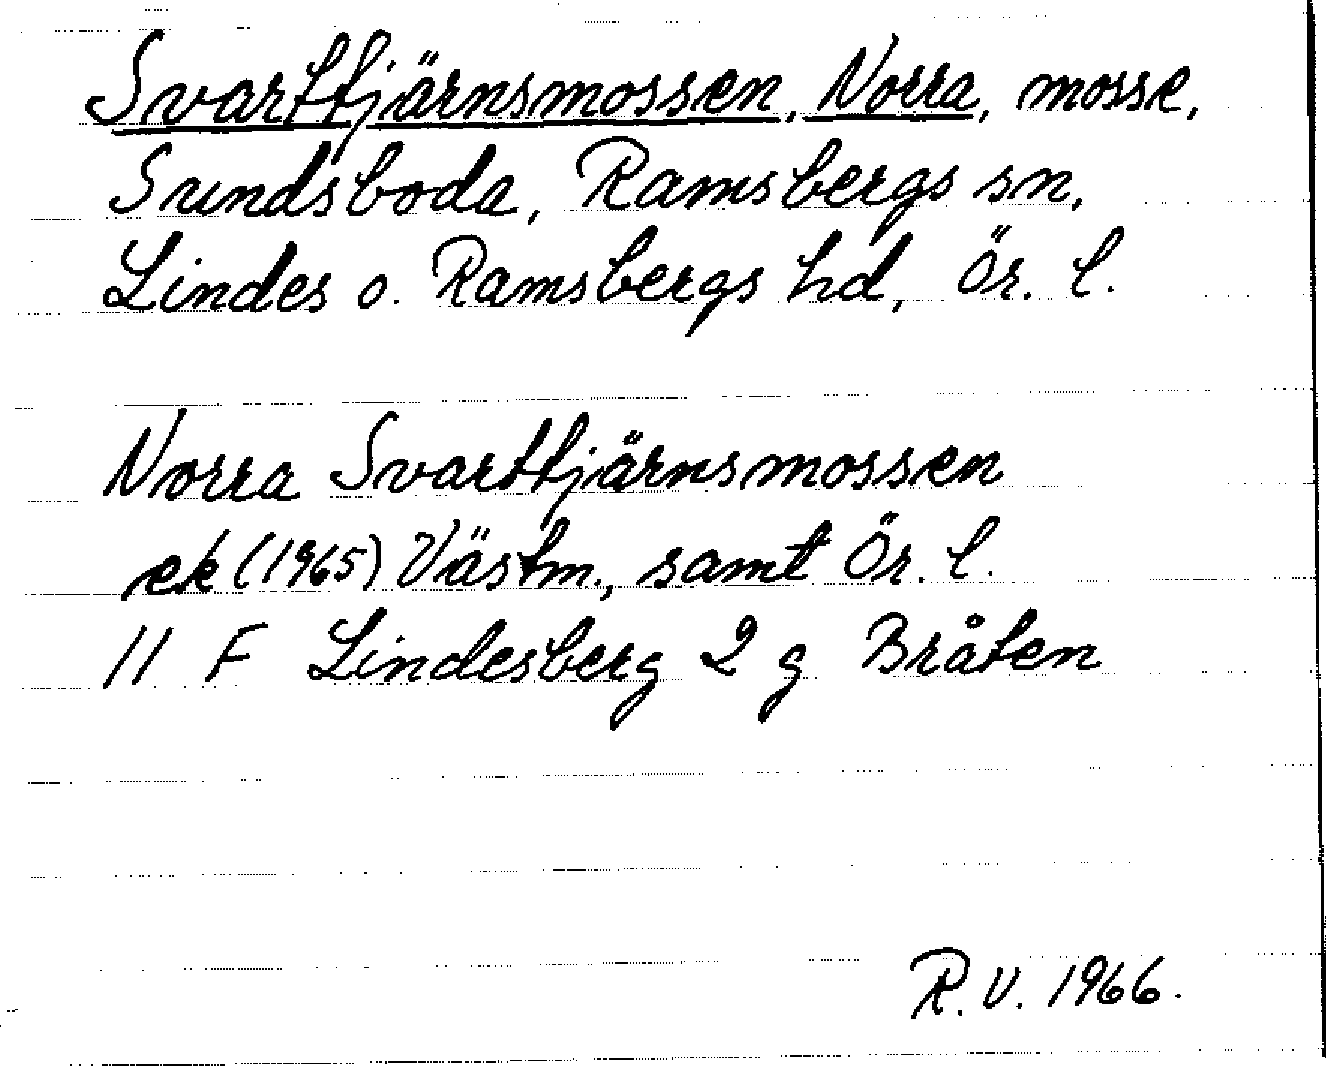 Svarttjärnsmossen, Norra, mosse,
Sundsboda, Ramsbergs sn,
Lindes o. Ramsbergs hd, Ör. l.
Norra Svarttjärnsmossen
ek (1965) Västm., samt Ör. l.
11 F Lindesberg 2 g Bråten
R.V. 1966.